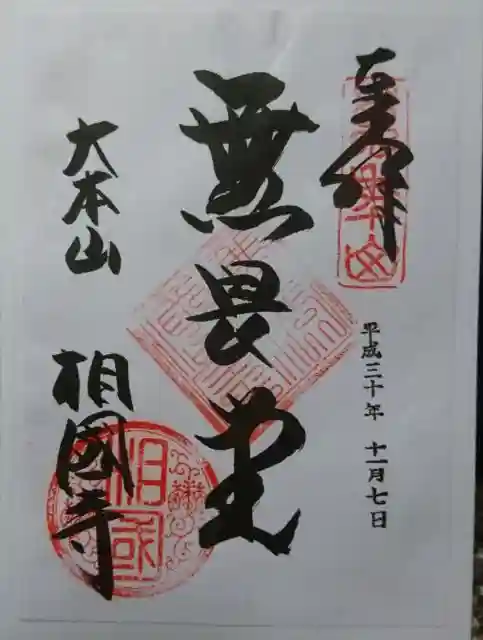 奉拝
平成三十年 十一月七日
無畏堂
大本山
相國寺
相国